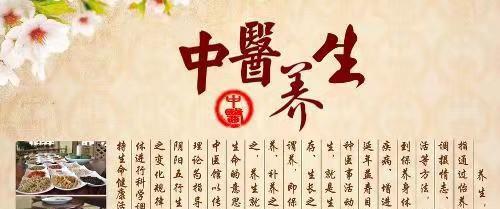 中醫养生
中醫
养生，
指通过怡养
调摄情志、
活等方法，
到保养身体
疾病、增进
延年益寿目
种医事活动
生，就是生
存、生长之
谓养，即保
养、补养之
之，养生就
生命的意思
中医馆以传
理论为指导
阴阳五行生
之变化规律
体进行科学调
持生命健康活